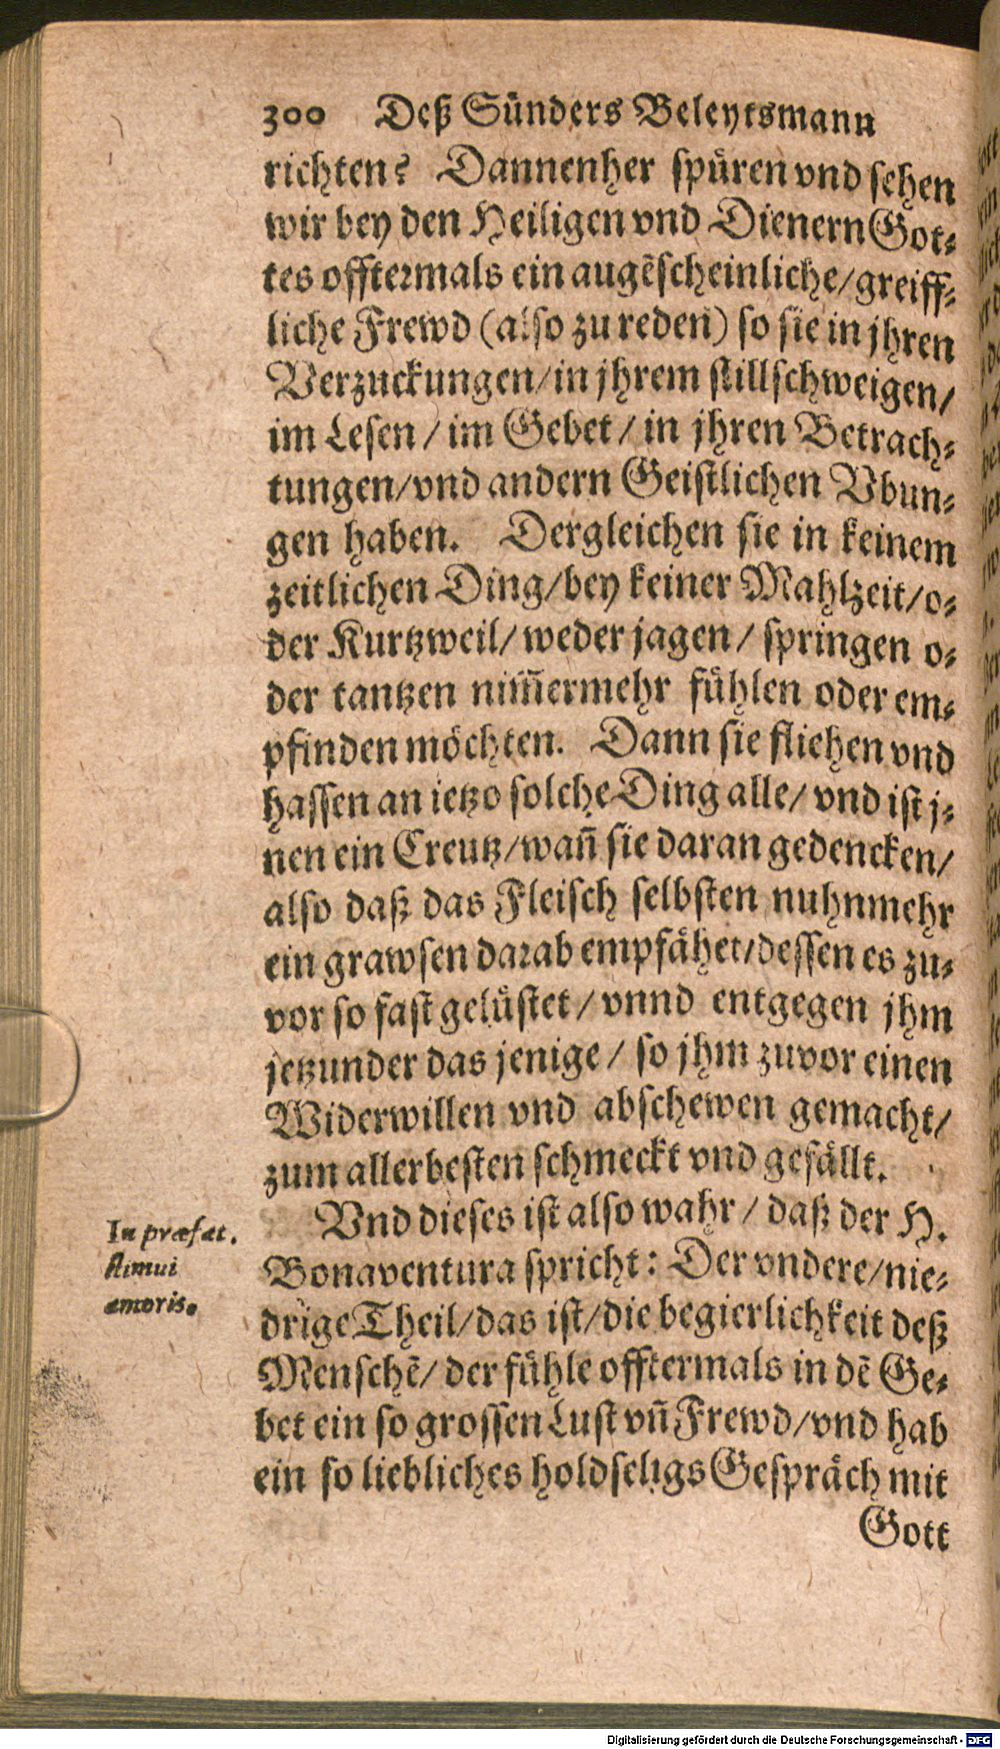 300 Deß Sünders Beleytsmann
richten? Dannenher spüren vnd sehen
wir bey den Heiligen vnd Dienern Got-
tes offtermals ein augẽscheinliche/greiff-
liche Frewd (also zu reden) so sie in jhren
Verzuckungen/in jhrem stillschweigen/
im Lesen / im Gebet / in jhren Betrach-
tungen/vnd andern Geistlichen Vbun-
gen haben. Dergleichen sie in keinem
zeitlichen Ding/bey keiner Mahlzeit/o-
der Kurtzweil/ weder jagen / springen o-
der tantzen nim̃ermehr fühlen oder em-
pfinden möchten. Dann sie fliehen vnd
hassen an ietzo solche Ding alle/ vnd ist j-
nen ein Creutz/wañ sie daran gedencken/
also daß das Fleisch selbsten nuhnmehr
ein grawsen darab empfähet/dessen es zu-
vor so fast gelüstet / vnnd entgegen jhm
jetzunder das jenige / so jhm zuvor einen
Widerwillen vnd abschewen gemacht/
zum allerbesten schmeckt vnd gefällt.
Vnd dieses ist also wahr / daß der H.
In præfat.
Bonaventura spricht: Der vndere/nie-
stimui
drige Theil/das ist/die begierlichkeit deß
amoris.
Menschẽ/ der fühle offtermals in dẽ Ge-
bet ein so grossen Lust vñ Frewd/vnd hab
ein so liebliches holdseligs Gespräch mit
Gott
Digitalisierung gefördert durch die Deutsche Forschungsgemeinschaft - DFG